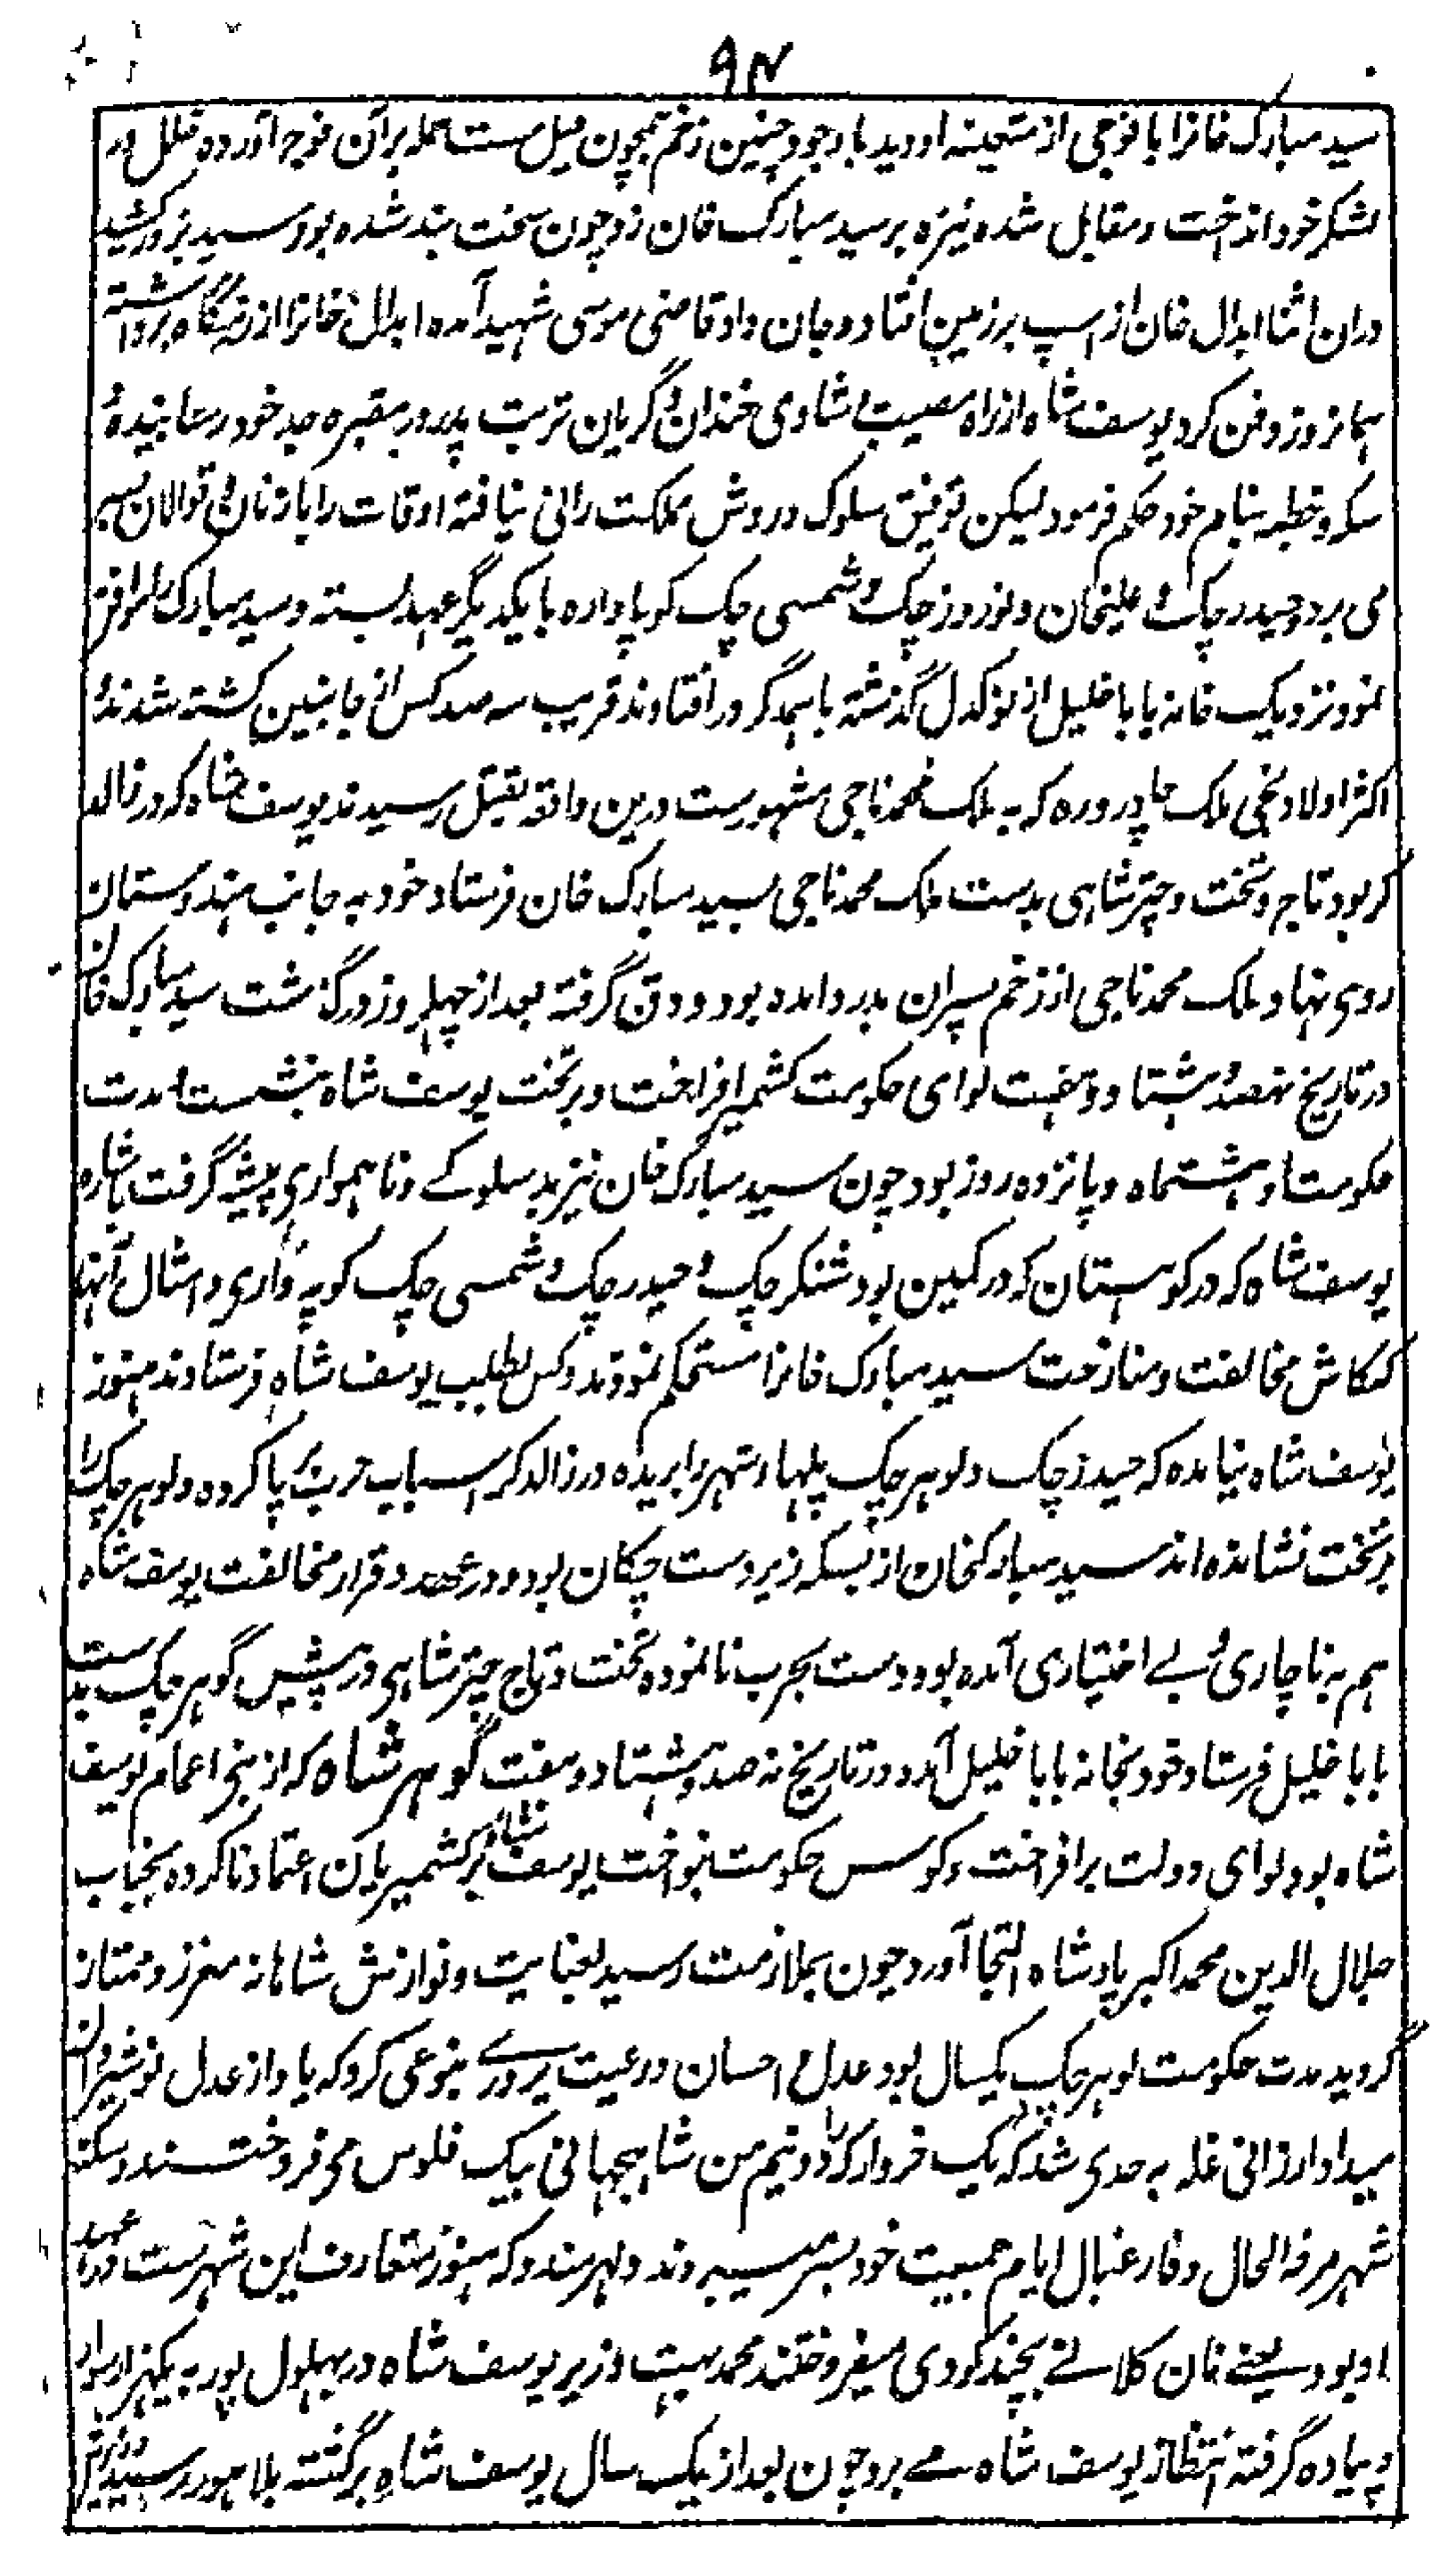 ۹۴
سید مبارک خانرا با فوجی از متعینه او دید با وجود چنین زخم همچون میل مست حمله بر آن فوج آورده خلل در
لشکر خود انداخت و مقابل شده نیزه بر سید مبارک خان زد چون سخت بند شده بود سید بزور کشید
دران اثنا ابدال خان از اسپ بر زمین افتاد و جان داد قاضی موسی شهید آمده ابدال خانرا از رزمگاه برداشته
همانروز دفن کرد یوسف شاه از راه مصیبت و شادی خندان و گریان تربت پدر در مقبره جد خود رسانیده
سکه و خطبه بنام خود حکم فرمود لیکن توفیق سلوک در روش مملکت رانی نیافته اوقات را با زنان و قوالان بسر
می برد حیدر چک و علیخان و نوروز چک و شمسی چک کوپاواره با یکدیگر عهد بسته و سید مبارک را موافق
نمود نزدیک خانه بابا خلیل از نوکدل گذشته با همدگر در افتادند قریب سه صد کس از جانبین کشته شدند و
اکثر اولاد نجی ملک چادروره که به ملک محمد ناجی مشهورست درین واقعه بقتل رسیدند یوسف شاه که در زالد
کر بود تاج و تخت و چتر شاهی بدست ملک محمد ناجی بسید مبارک خان فرستاد خود به جانب هندوستان
روی نهاد و ملک محمد ناجی از زخم پسران بدرد آمده بود و دق گرفته بعد از چهل روز درگذشت سید مبارک خان
در تاریخ نهصد و هشتاد و هفت لوای حکومت کشمیر افراخت و بر تخت یوسف شاه بنشست مدت
حکومت او هشتماه و پانزده روز بود چون سید مبارک خان نیز بد سلوکے و ناهمواری پیشه گرفت باشاره
یوسف شاه که در کوهستان که در کمین بود شنکر چک و حیدر چک و شمسی چک کوپه واری و امثال آنها
کنکاش مخالفت و منازعت سید مبارک خانرا مستحکم نمودند و کس بطلب یوسف شاه فرستادند هنوز
یوسف شاه نیامده که حیدر چک و لوهر چک پلهاء شهر را بریده در زالدکر اسباب حرب برپا کرده و لوهر چک را
بر تخت نشانده اند سید مبارکخان از بسکه زیردست چکان بود و در عهد و قرار مخالفت یوسف شاه
هم به ناچاری و بے اختیاری آمده بود دست بحرب نا نموده تخت و تاج و چتر شاهی در پیش گوهر چک بدست
بابا خلیل فرستاد و خود بخانه بابا خلیل آمد و در تاریخ نه صد و هشتاد و هفت گوهر شاه که از بنی اعمام یوسف
شاه بود لوای دولت برافراخت و کوس حکومت بنواخت یوسف شاه بر کشمیریان اعتماد ناکرده بجناب
جلال الدین محمد اکبر پادشاه التجا آورد چون بملازمت رسید بعنایت و نوازش شاهانه معزز و ممتاز
گردید مدت حکومت لوهر چک یکسال بود عدل و احسان و رعیت پروری بنوعی کرد که یاد از عدل نوشیروان
میداد ارزانی غله به حدی شد که یک خروار که دو نیم من شاهجهانی بیک فلوس می فروختند و سکنه
شهر مرفه الحال و فارغبال ایام جمعیت خود بسر میبردند و لهرمندو که هنوز متعارف این شهرست در عهد
او بود یحیی خان کلاسے بچند کودی میفروختند محمد بهت وزیر یوسف شاه در بهلول پور به یکهزار سوار
و پیاده گرفته انتظار یوسف شاه مے برد چون بعد از یک سال یوسف شاه برگشته بلاهور رسید